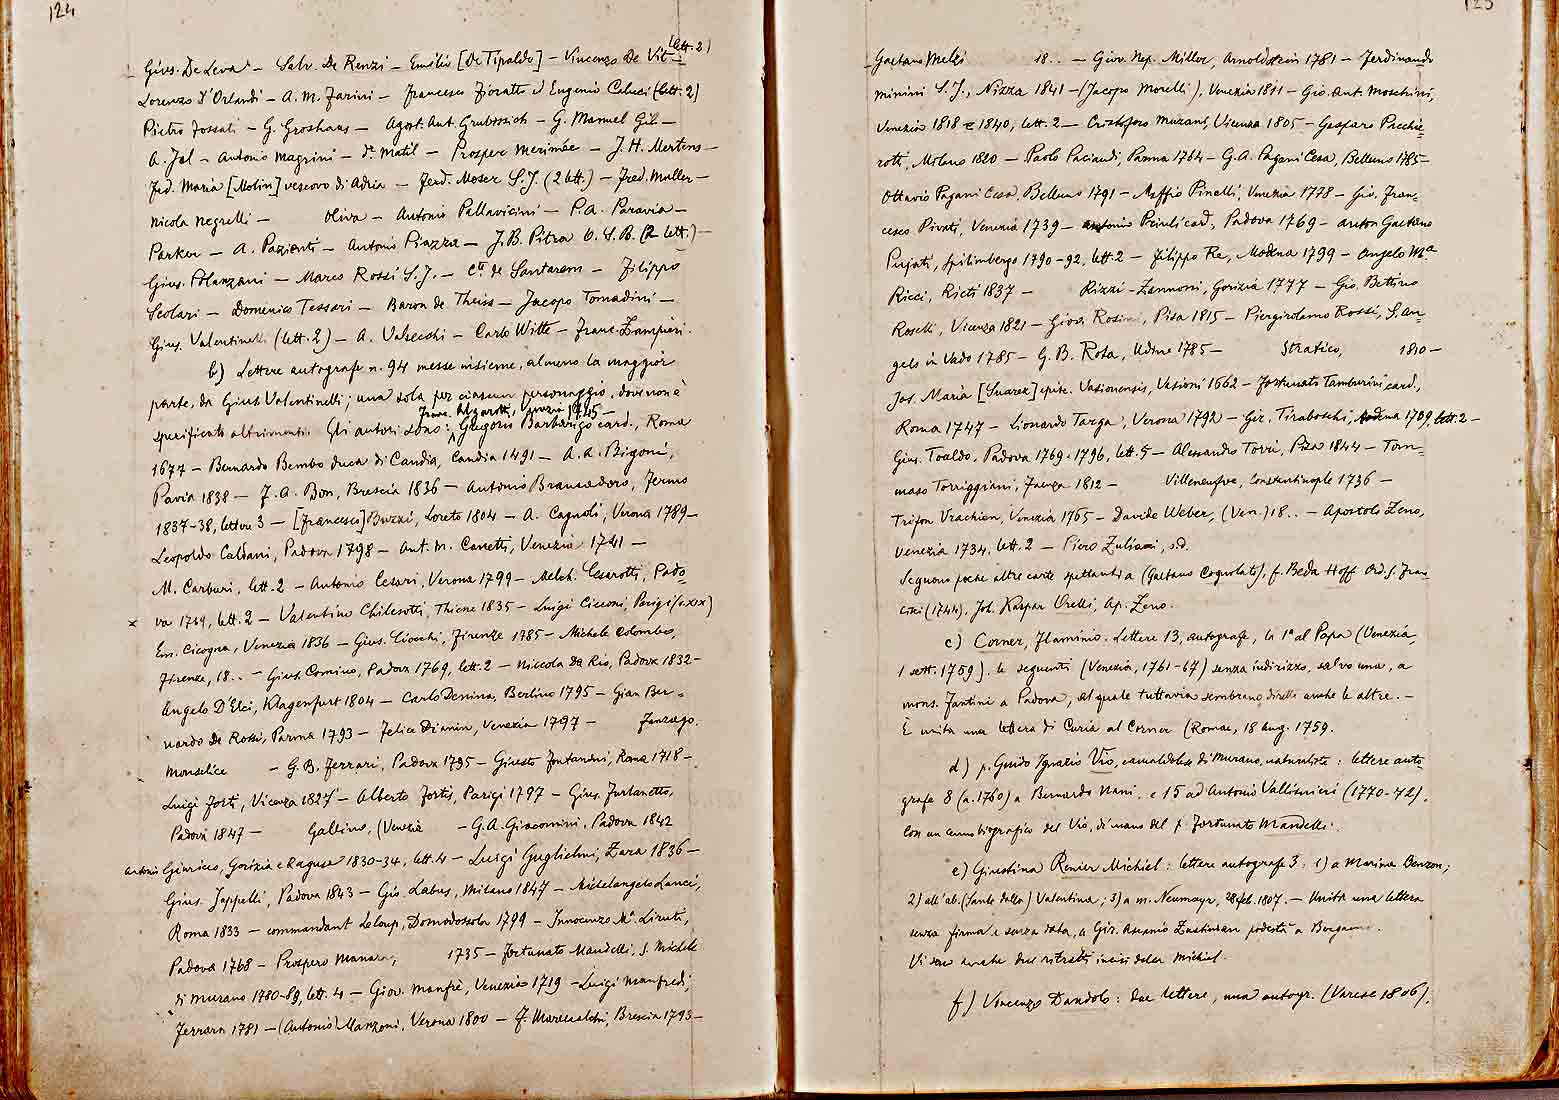 124
Gius. De Leva - Salv. De Renzi - Emilio [De Tipaldo] - Vincenzo De Vit (lett. 2)
Lorenzo D'Orlandi - A. M. Farini - Francesco Fioratti d Eugenio Caluci (lett. 2)
Pietro Fossati - G. Groshans - Agost. Ant. Grubissich - G. Manuel Gil -
A. Jal - Antonio Magrini - Dr. Matil - Prospero Merimée - J. H. Mertens -
Ferd. Maria [Molin] vescovo di Adria - Ferd. Moser S. J. (2 lett.) - Fred. Muller -
Nicola Negrelli - Oliva - Antonio Pallavicini - P. A. Paravia -
Parker - A. Pazienti - Antonio Piazza - J. B. Pitra O. S. B. (2 lett.) -
Gius. Polanzani - Marco Rossi S. J. - Cte de Santarem - Filippo
Scolari - Domenico Tessari - Baron de Theiss - Jacopo Tomadini -
Gius. Valentinelli (lett. 2) - A. Valsecchi - Carlo Witte - Franc. Zamperi.
b) Lettere autografe n. 94 messe insieme, almeno la maggior
parte, da Gius. Valentinelli; una sola per ciascun personaggio, dove non è
Franc. Algarotti, Venezia 1745 -
specificato altrimenti. Gli autori sono: Gregorio Barbarigo card., Roma
1677 - Bernardo Bembo duca di Candia, Candia 1491 - A. A. Brigoni,
Pavia 1838 - F. A. Bon, Brescia 1836 - Antonio Brancadoro, Fermo
1837-38, lettere 3 - [Francesco] Buzzi, Loreto 1804 - A. Cagnoli, Verona 1789 -
Leopoldo Caldani, Padova 1798 - Ant. M. Canetti, Venezia 1741 -
M. Carburi, lett. 2 - Antonio Cesari, Verona 1799 - Melch. Cesarotti, Pado-
va 1769, lett. 2 - Valentino Chilesotti, Thiene 1835 - Luigi Cicconi, Parigi (s. XIX)
Em. Cicogna, Venezia 1836 - Gius. Ciocchi, Firenze 1785 - Michele Colombo,
Firenze, 18.. - Gius. Comino, Padova 1769, lett. 2 - Niccola Da Rio, Padova 1832 -
Angelo D'Elci, Klagenfurt 1804 - Carlo Denina, Berlino 1795 - Gian Ber-
nardo De Rossi, Parma 1793 - Felice Dianin, Venezia 1797 - Fanzago.
Monselice - G. B. Ferrari, Padova 1795 - Giusto Fontanini, Roma 1718 -
Luigi Forti, Vicenza 1827 - Alberto Fortis, Parigi 1797 - Gius. Furlanetto,
Padova 1847 - Gallino, (Venezia - G. A. Giacomini, Padova 1842
Antonio Giuriceo, Gorizia e Ragusa 1830-34, lett. 4 - Luigi Guglielmi, Zara 1836 -
Gius. Jappelli, Padova 1843 - Gio. Labus, Milano 1847 - Michelangelo Lanci,
Roma 1833 - commandant Leloup, Domodossola 1799 - Innocenzo Ma. Liruti,
Padova 1768 - Prospero Manara, 1735 - Fortunato Mandelli, S. Michele
di Murano 1780-89, lett. 4 - Giov. Manfrè, Venezia 1719 - Luigi Manfredi,
Ferrara 1781 - (Antonio) Manzoni, Verona 1800 - F. Marecalchi, Brescia 1793 -
125
Gaetano Melzi 18.. - Giov. Nep. Miller, Arnoldstein 1781 - Ferdinando
Minini S. J., Nizza 1841 - (Jacopo Morelli), Venezia 1811 - Gio. Ant. Moschini,
Venezia 1818 e 1840, lett. 2 - Cristoforo Muzani, Vicenza 1805 - Gasparo Pacchie-
rotti, Milano 1800 - Paolo Paciaudi, Parma 1764 - G. A. Pagani Cesa, Belluno 1785 -
Ottavio Pagani Cesa, Belluno 1791 - Maffio Pinelli, Venezia 1778 - Gio. Fran-
cesco Pivati, Venezia 1739 - Antonio Priuli card., Padova 1769 - Anton Gaetano
Pujati, Spilimbergo 1790-92, lett. 2 - Filippo Re, Modena 1799 - Angelo Ma
Ricci, Rieti 1837 - Rizzi-Zannoni, Gorizia 1777 - Gio. Bettino
Roselli, Vicenza 1821 - Giov. Rosini, Pisa 1815 - Piergirolamo Rossi, S. An-
gelo in Vado 1785 - G. B. Rota, Udine 1785 - Stratico, 1810 -
Jos. Maria [Suarez] episc. Vasionensis, Vasioni 1662 - Fortunato Tamburini card.,
Roma 1747 - Lionardo Targa, Verona 1792 - Gir. Tiraboschi, Modena 1789, lett. 2 -
Gius. Toaldo, Padova 1769-1796, lett. 5 - Alessandro Torri, Pisa 1844 - Tom-
maso Torriggiani, Faenza 1812 - Villeneufve, Constantinople 1736 -
Trifon Vrachien, Venezia 1765 - Davide Weber, (Ven.) 18.. - Apostolo Zeno,
Venezia 1734, lett. 2 - Piero Zuliani, s.d.
Seguono poche altre carte spettanti a (Gaetano Cognolati), f. Beda Hoff Ord. S. Fran-
cisci (1744), Joh. Kaspar Orelli, Ap. Zeno.
c) Corner, Flaminio. Lettere 13, autografe, la 1a al Papa (Venezia,
1 sett. 1759), le seguenti (Venezia, 1761-67) senza indirizzo, salvo una, a
mons. Fantini a Padova, al quale tuttavia sembrano dirette anche le altre. -
È unita una lettera di Curia al Corner (Romae, 18 aug. 1759.
d) p. Guido Ignazio Vio, camaldolese di Murano, naturalista: lettere auto-
grafe 8 (a. 1760) a Bernardo Nani, e 15 ad Antonio Vallisnieri (1770-72),
con un cenno biografico del Vio, di mano del p. Fortunato Mandelli.
e) Giustina Renier Michiel: lettere autografe 3: 1) a Marina Benzon;
2) all'ab. (Sante della) Valentina; 3) a m. Neumayr, 28 feb. 1807. - Unita una lettera
senza firma e senza data, a Gir. Ascanio Zustinian podestà a Bergamo.
Vi sono anche due ritratti incisi della Michiel.
f) Vincenzo Dandolo: due lettere, una autogr. (Varese 1806),